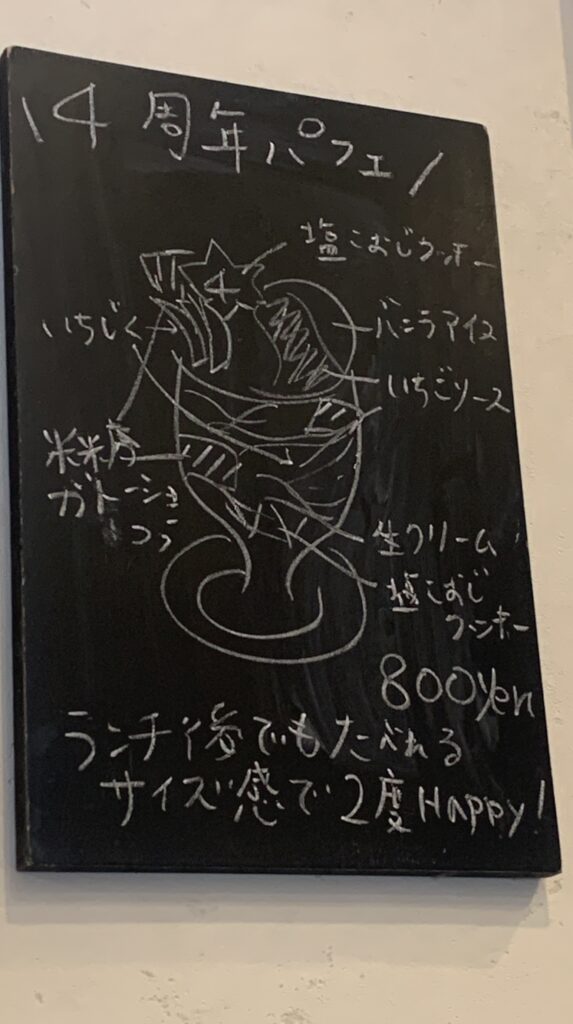 \14周年パフェ/
塩こおじクッキー
4
いちじく
バニラアイス
いちごソース
米粉
ガトーショコラ
生クリーム
塩こおじ
クッキー
800yen
ランチ後でもたべれる
サイズ感で2度Happy!